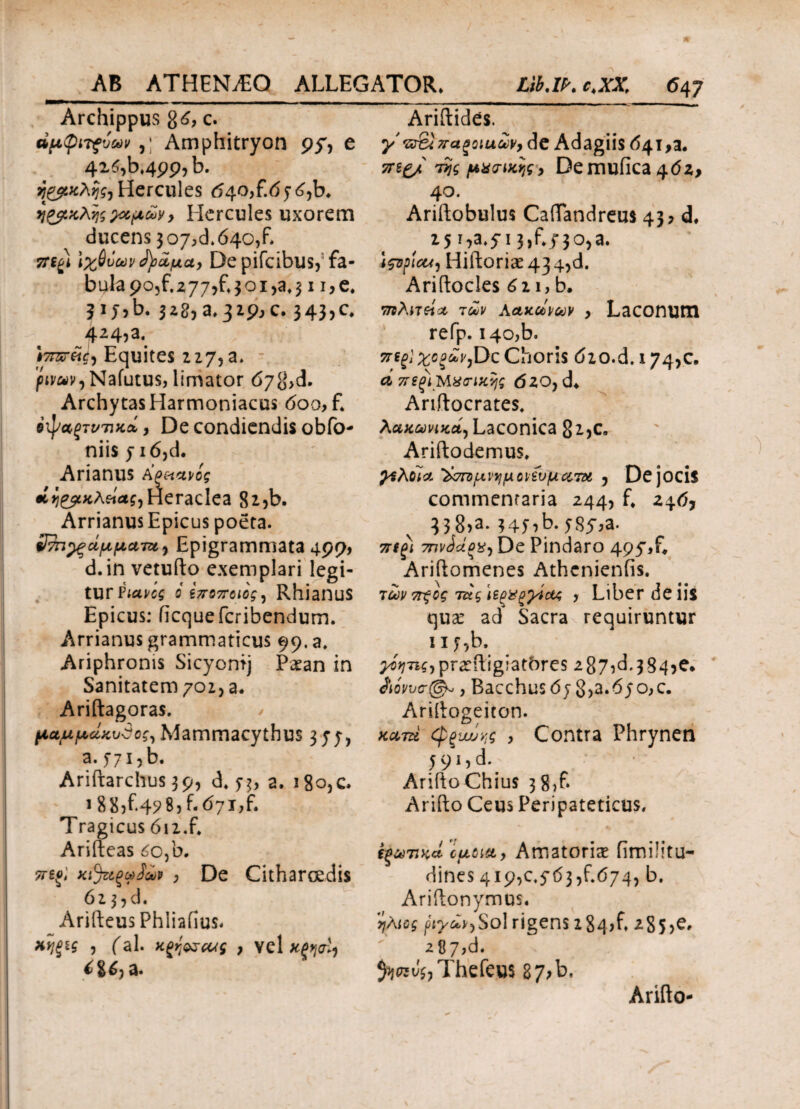 AB ATHENÆO ALLEGATOR. Lib.IV. c.XX. 647
Archippus 86, c.
ἀμφιτρύων, Amphitryon 95, e
426,b.499, b.
ἡρακλῆς, Hercules 640,f.656,b.
ἡρακλῆς γαμῶν, Hercules uxorem
ducens 307,d.640,f.
περὶ ἰχθύων δρᾶμα, De piscibus, fa-
bula 90,f.277,f.301,a.311,e.
315,b. 328, a. 329, c. 343, c.
424,a.
ἱππεῖς, Equites 227, a.
ῥίνων, Nasutus, limator 678,d.
Archytas Harmoniacus 600, f.
ὀψαρτυτικὰ, De condiendis obso-
niis 516,d.
Arianus Ἀρειανός
ἀἡρακλείας, Heraclea 82,b.
Arrianus Epicus poëta.
ἐπιγράμματα, Epigrammata 499,
d. in vetusto exemplari legi-
tur ῥιανός ὁ ἐποποιός, Rhianus
Epicus: sicque scribendum.
Arrianus grammaticus 99. a.
Ariphronis Sicyonij Pæan in
Sanitatem 702, a.
Aristagoras.
μαμμάκυθος, Mammacythus 355,
a. 571, b.
Aristarchus 39, d. 53, a. 180, c.
188,f.498, f. 671,f.
Tragicus 612.f.
Aristeas 60,b.
περὶ κιθαρῳδῶν, De Citharœdis
623, d.
Aristeus Phliasius.
κῆρες, (al. κρήσσαις, vel κρησὶ,
686, a.
Aristides.
γ´ περὶ παροιμιῶν, de Adagiis 641,a.
περὶ τῆς μουσικῆς, De musica 462,
40.
Aristobulus Cassandreus 43, d.
251,a.513,f.530,a.
ἱστορίαι, Historiæ 434,d.
Aristocles 621, b.
πολιτεία τῶν Λακώνων, Laconum
resp. 140,b.
περὶ χορῶν, De Choris 620.d. 174,c.
ἀ περὶ Μουσικῆς 620, d.
Aristocrates.
λακωνικά, Laconica 82,c.
Aristodemus.
γελοῖα ἀπομνημονεύματα, De jocis
commentaria 244, f. 246,
338,a. 345,b. 585,a.
περὶ πινδάρου, De Pindaro 495,f.
Aristomenes Atheniensis.
τῶν πρὸς τὰς ἱερουργίας, Liber de iis
quæ ad Sacra requiruntur
115,b.
γόητες, præstigiatores 287,d.384,e.
διόνυσος, Bacchus 658,a.650,c.
Aristogeiton.
κατὰ φρύνης, Contra Phrynen
591, d.
Aristo Chius 38,f.
Aristo Ceus Peripateticus.
ἐρωτικὰ ὅμοια, Amatoriæ similitu-
dines 419,c.563,f.674, b.
Aristonymus.
ἥλιος ῥιγῶν, Sol rigens 284,f. 285,e.
287,d.
θησεύς, Theseus 87,b.
Aristo-